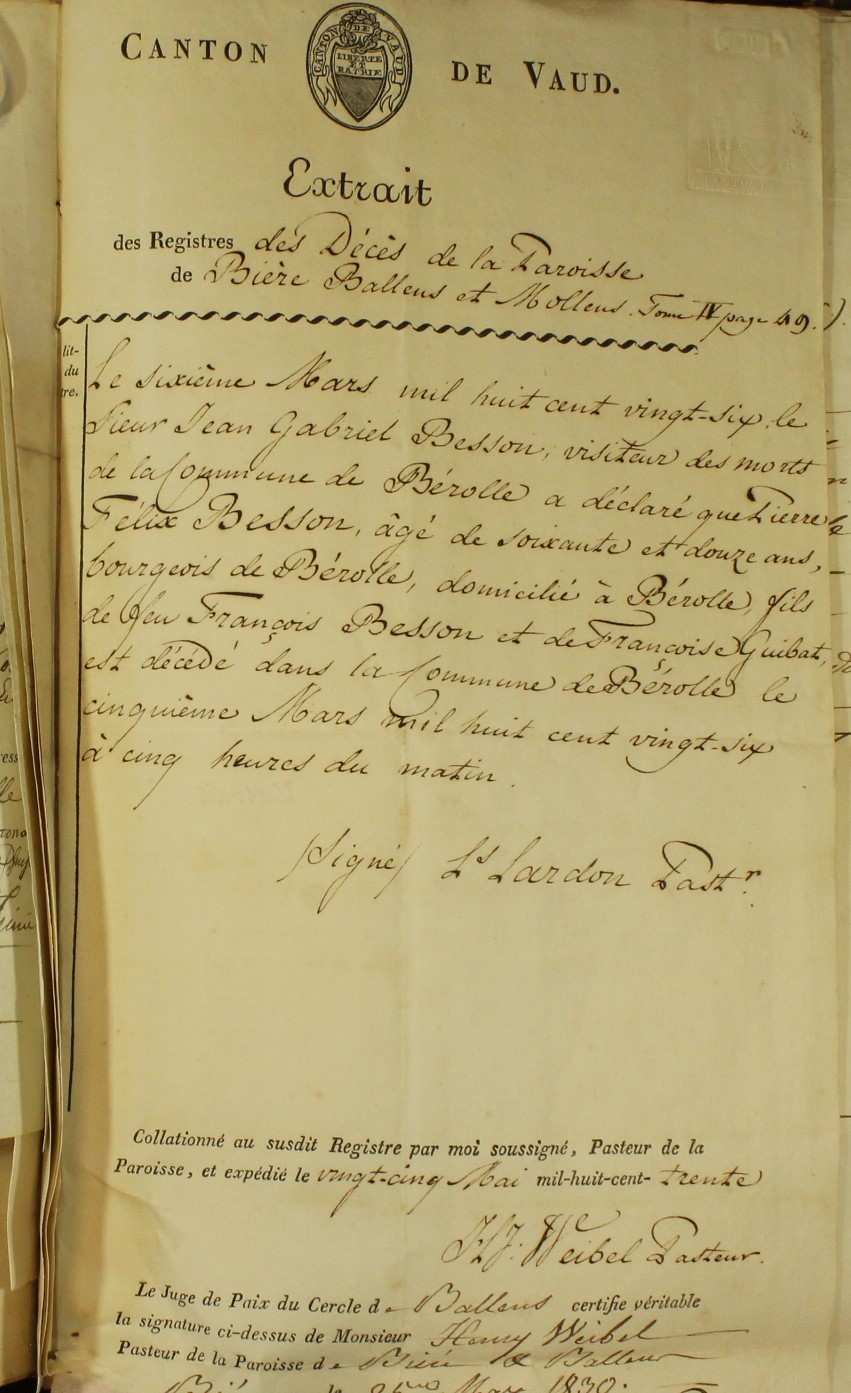 CANTON DE VAUD.
CANTON DE VAUD
LIBERTE
ET
PATRIE
Extrait
des Registres des Décès de la Paroisse
de Bière Ballens et Mollens. Tome IV page 49.
Le sixième Mars mil huit cent vingt-six, le
Sieur Jean Gabriel Besson, visiteur des morts
de la Commune de Bérolle a déclaré que Pierre
Félix Besson, âgé de soixante et douze ans,
bourgeois de Bérolle, domicilié à Bérolle, fils
de feu François Besson et de Françoise Guibat,
est décédé dans la Commune de Bérolle le
cinquième Mars mil huit cent vingt-six
à cinq heures du matin.
(Signé) Ls Lardon Pastr.
Collationné au susdit Registre par moi soussigné, Pasteur de la
Paroisse, et expédié le vingt-cinq Mai mil-huit-cent-trente
Weibel Pasteur.
Le Juge de Paix du Cercle de Ballens certifie véritable
la signature ci-dessus de Monsieur Henry Weibel
Pasteur de la Paroisse de Bière & Ballens
1830.